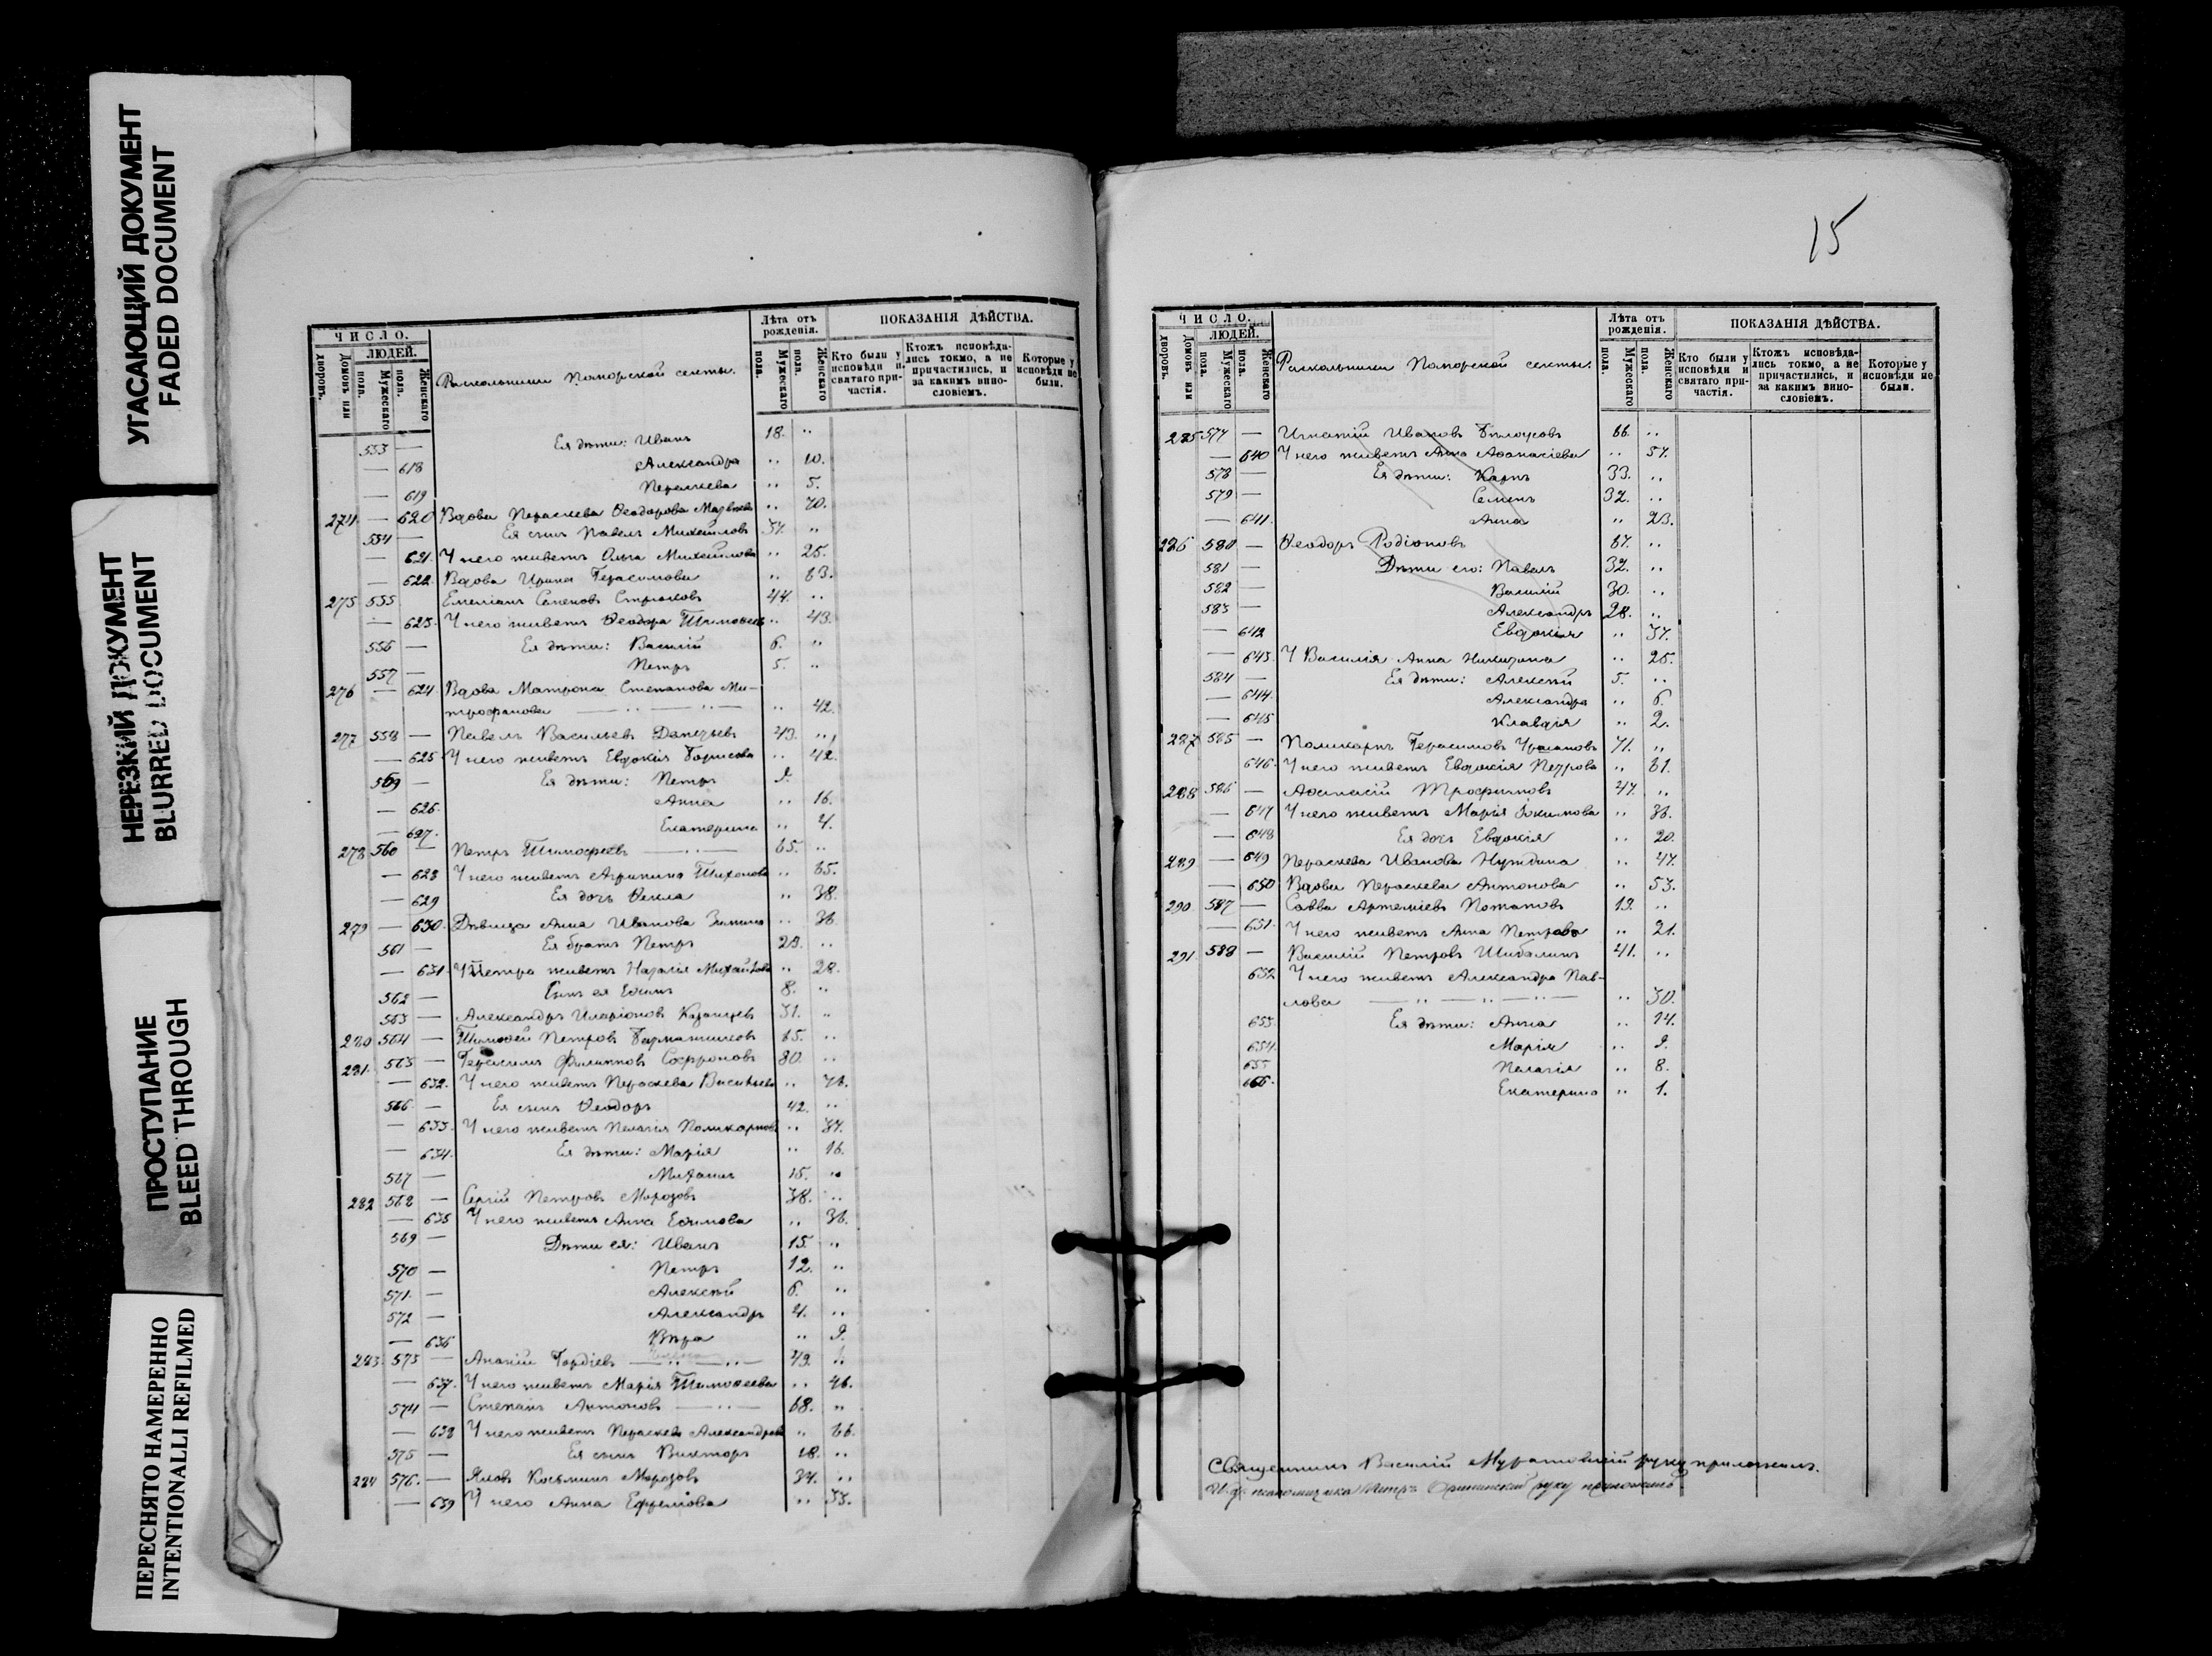 УГАСАЮЩИЙ ДОКУМЕНТ
FADED DOCUMENT
НЕРЕЗКИЙ ДОКУМЕНТ
BLURRED DOCUMENT
ПРОСТУПАНИЕ
BLEED THROUGH
ПЕРЕСНЯТО НАМЕРЕННО
INTENTIONALLI REFILMED
ЧИСЛО.
ЛЮДЕЙ.
Домовъ или дворовъ.
Мужескаго пола.
Женскаго пола.
Раскольники Поморской секты.
Лѣта отъ рожденія.
Мужескаго пола.
Женскаго пола.
ПОКАЗАНІЯ ДѢЙСТВА.
Кто были у исповѣди и святаго причастія.
Ктожъ исповѣдались токмо, а не причастились, и за какимъ винословіемъ.
Которые у исповѣди не были.
553 — Ея дѣти: Иванъ 18. ..
— 618 Александра .. 10.
— 619 Пераскева .. 5.
274. — 620 Вдова Пераскева Ѳеодорова .. 70.
554 — Ея сынъ Павелъ Михайловъ 37. ..
— 621. У него живетъ Анна Михайлова .. 25.
— 622. Вдова Ирина Герасимова .. 63.
275 555 Емеліанъ Семеновъ 44. ..
— 623. У него живетъ Ѳеодора .. 43.
556 — Ея дѣти: Василій 6. ..
557 — Петръ 5. ..
276 — 624 Вдова Матрона Степанова Ми-
трофанова — .. — .. — .. 42.
277 558 — Павелъ Васильевъ 43. ..
— 625 У него живетъ Евдокія Борисова .. 42.
569 — Ея дѣти: Петръ 9.
— 626. Анна .. 16.
— 627. Екатерина .. 4.
278 560 — Петръ Тимофеевъ — .. — 65. ..
— 628 У него живетъ Агрипина Тихонова .. 65.
— 629 Ея дочь Ѳекла .. 38.
279 — 630. Дѣвица Анна Иванова Зимина .. 36
561 — Ея братъ Петръ 23. ..
— 631. У Петра живетъ Наталія Михайлова .. 28.
562 — Сынъ ея Ефимъ 8. ..
563 — Александръ Иларіоновъ Казанцевъ 31. ..
280 564 — Тимоѳей Петровъ 65. ..
281. 565 — Герасимъ Филипповъ Софроновъ 80. ..
— 632. У него живетъ Пераскева Васильева ..
566 — Ея сынъ Ѳеодоръ 42. ..
— 633. У него живетъ Пелагія Поликарпова .. 37.
— 634. Ея дѣти: Марія .. 16.
567 — Михаилъ 15. ..
282 568 — Сергій Петровъ Морозовъ 38. ..
— 635 У него живетъ Анна Ефимова .. 36.
569 — Дѣти ея: Иванъ 15. ..
570 — Петръ 12. ..
571. — Алексѣй 6. ..
572 — Александръ 4. ..
— 636 Вѣра .. 9.
283. 573 — Ананій Гордіевъ — .. — .. — 49. ..
— 637. У него живетъ Марія Тимоѳеева .. 46.
574 — Степанъ Антоновъ — .. — 68. ..
— 638 У него живетъ Пераскева Александрова .. 66.
575 — Ея сынъ Викторъ 18. ..
284 576. — Яковъ Косьминъ Морозовъ 34. ..
— 639 У него Анна Ефремова .. 33.
15
ЧИСЛО.
ЛЮДЕЙ.
Домовъ или дворовъ.
Мужескаго пола.
Женскаго пола.
Раскольники Поморской секты.
Лѣта отъ рожденія.
Мужескаго пола.
Женскаго пола.
ПОКАЗАНІЯ ДѢЙСТВА.
Кто были у исповѣди и святаго причастія.
Ктожъ исповѣдались токмо, а не причастились, и за какимъ винословіемъ.
Которые у исповѣди не были.
285 577 — Игнатій Ивановъ Бѣлоусовъ 66. ..
— 640 У него живетъ Анна Аѳанасіева .. 57.
578 — Ея дѣти: Карпъ 33. ..
579 — Семенъ 32. ..
— 641. Анна .. 23.
286 580 — Ѳеодоръ Родіоновъ 67. ..
581 — Дѣти его: Павелъ 32. ..
582 — Василій 30. ..
583 — Александръ 28. ..
— 642 Евдокія .. 37.
— 643. У Василія Анна Никитина .. 25.
584 — Ея дѣти: Алексѣй 5. ..
— 644. Александра .. 6.
— 645 Клавдія .. 2.
287 585 — Поликарпъ Герасимовъ 71. ..
646. У него живетъ Евдокія Петрова .. 61.
288 586 — Аѳанасій Трофимовъ 47. ..
— 647 У него живетъ Марія Іокимова .. 36.
— 648 Ея дочь Евдокія .. 20.
289 — 649 Пераскева Иванова Нуждина .. 47.
— 650 Вдова Пераскева Антонова .. 53.
290 587 — Савва Артеміевъ Потаповъ 19. ..
— 651. У него живетъ Анна Петрова .. 21.
291 588 — Василій Петровъ Шибалинъ 41. ..
652 У него живетъ Александра Пав-
лова — .. — .. — .. — .. 30.
653. Ея дѣти: Анна .. 14.
654. Марія .. 9.
655 Пелагія .. 8.
656. Екатерина .. 1.
Священникъ Василій Муратовскій руку приложилъ.
И. д. псаломщика Петръ руку приложилъ.